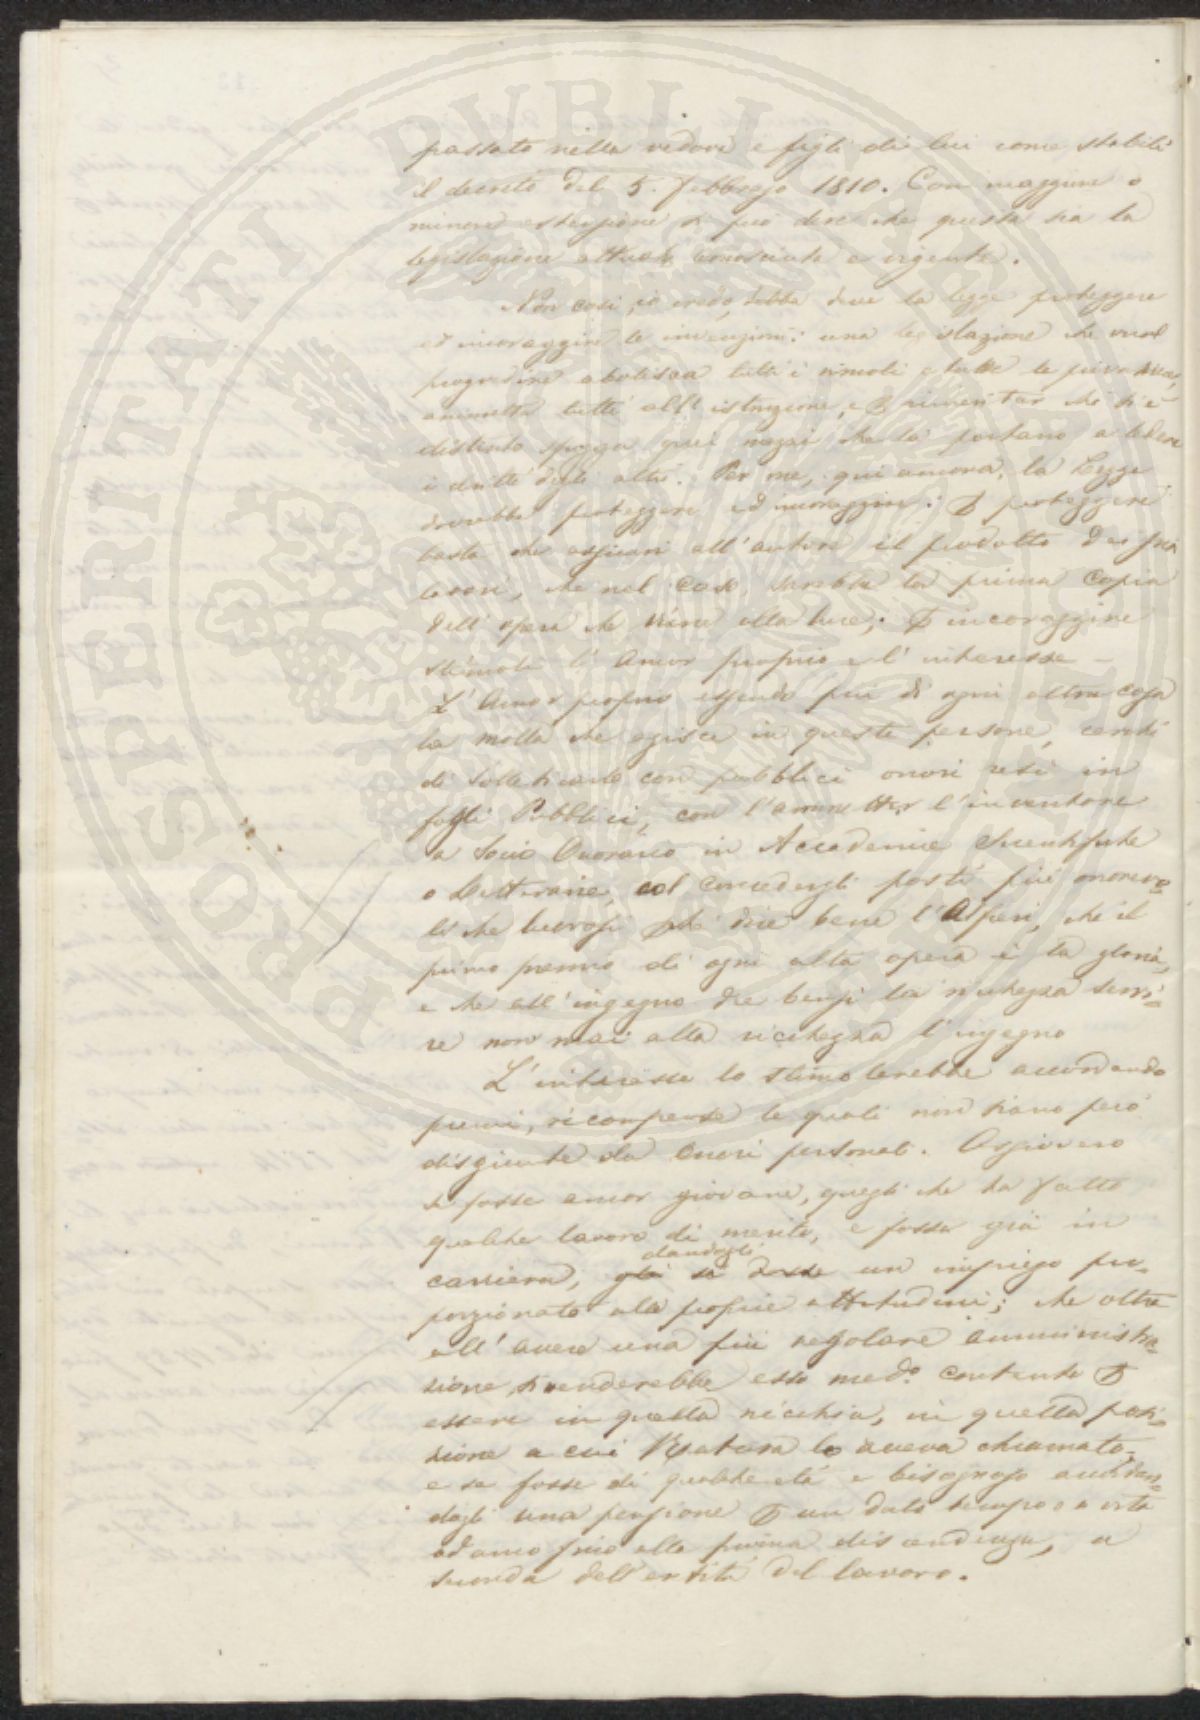 passato nella vedova e figli di lui come stabilì
il decreto del 5. Febbrajo 1810. Con maggiore o
minore estensione si può dire che questa sia la
legislazione attuale conosciuta e vigente.
Non così, io credo, debba deve la legge proteggere
ed incoraggire le invenzioni: una legislazione che vuol
progredire abolisca tutti i vincoli e tutte le privative,
ammetta tutti all'istruzione, e che si è
distinto quei mezzi che lo portano a ledere
i dritti degli altri. Per me, qui ancora, la Legge
dovrebbe proteggere ed incoraggire: proteggere
basta che assicuri all'autore il prodotto de' suoi
lavori, che nel caso sarebbe la prima Copia
dell'opera che viene alla luce; incoraggire
stimoli l'Amor proprio e l'interesse —
L'Amor proprio essendo più di ogni altra cosa
la molla che agisce in queste persone, cerchi
di solleticarlo con pubblici onori resi in
fogli Pubblici, con l'ammetter l'inventore
a Socio Onorario in Accademie Scientifiche
o Letterarie, col concedergli posti più onorevo=
li che lucrosi dice bene l'Alfieri, che il
primo premio di ogni alta opera è la gloria,
e che all'ingegno dee bensì la ricchezza servi=
re non mai alla ricchezza l'ingegno
L'interesse lo stimolerebbe accordando
premi, ricompense le quali non siano però
disgiunte da onori personali.
se fosse ancor giovane, quegli che ha fatto
qualche lavoro di merito, e fosse già in
dandogli
carriera, gli si desse un impiego pro=
porzionato alle proprie attitudini; che oltre
all'avere una più regolare amministra=
zione, si renderebbe esso med.o contento
essere in quella nicchia, in quella posi=
zione a cui Natura lo aveva chiamato;
e se fosse di qualche età e bisognoso accordan=
dogli una pensione un dato tempo o a vita
ed anco fino alla prima discendenza, a
seconda dell'entità del lavoro.
PROSPERITATI PUBLICAE AUGENDAE